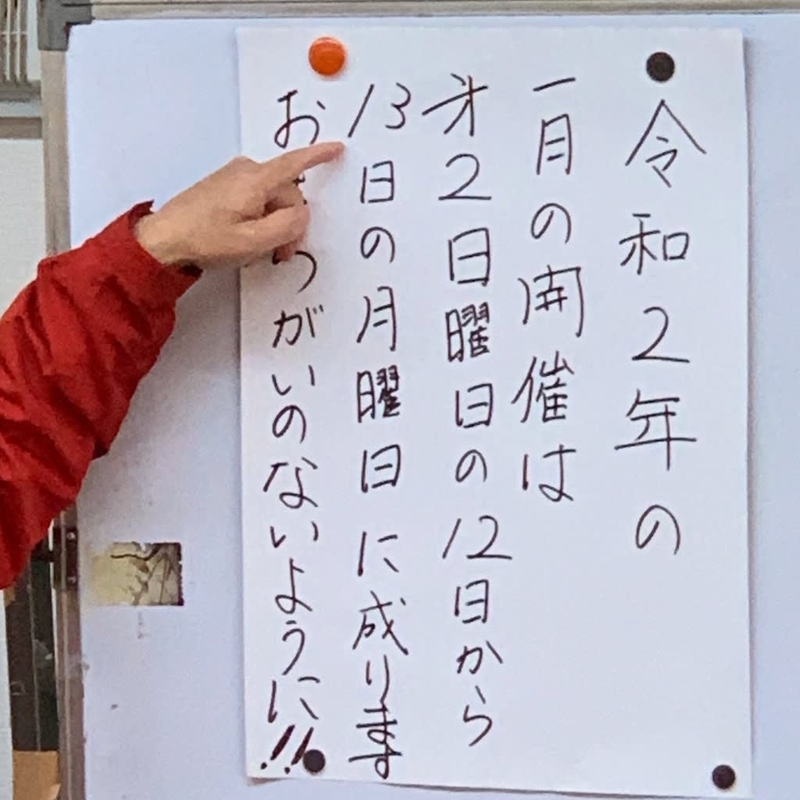 令和2年の
一月の開催は
才2日曜日の12日から
13日の月曜日に成ります
おまちがいのないように!!